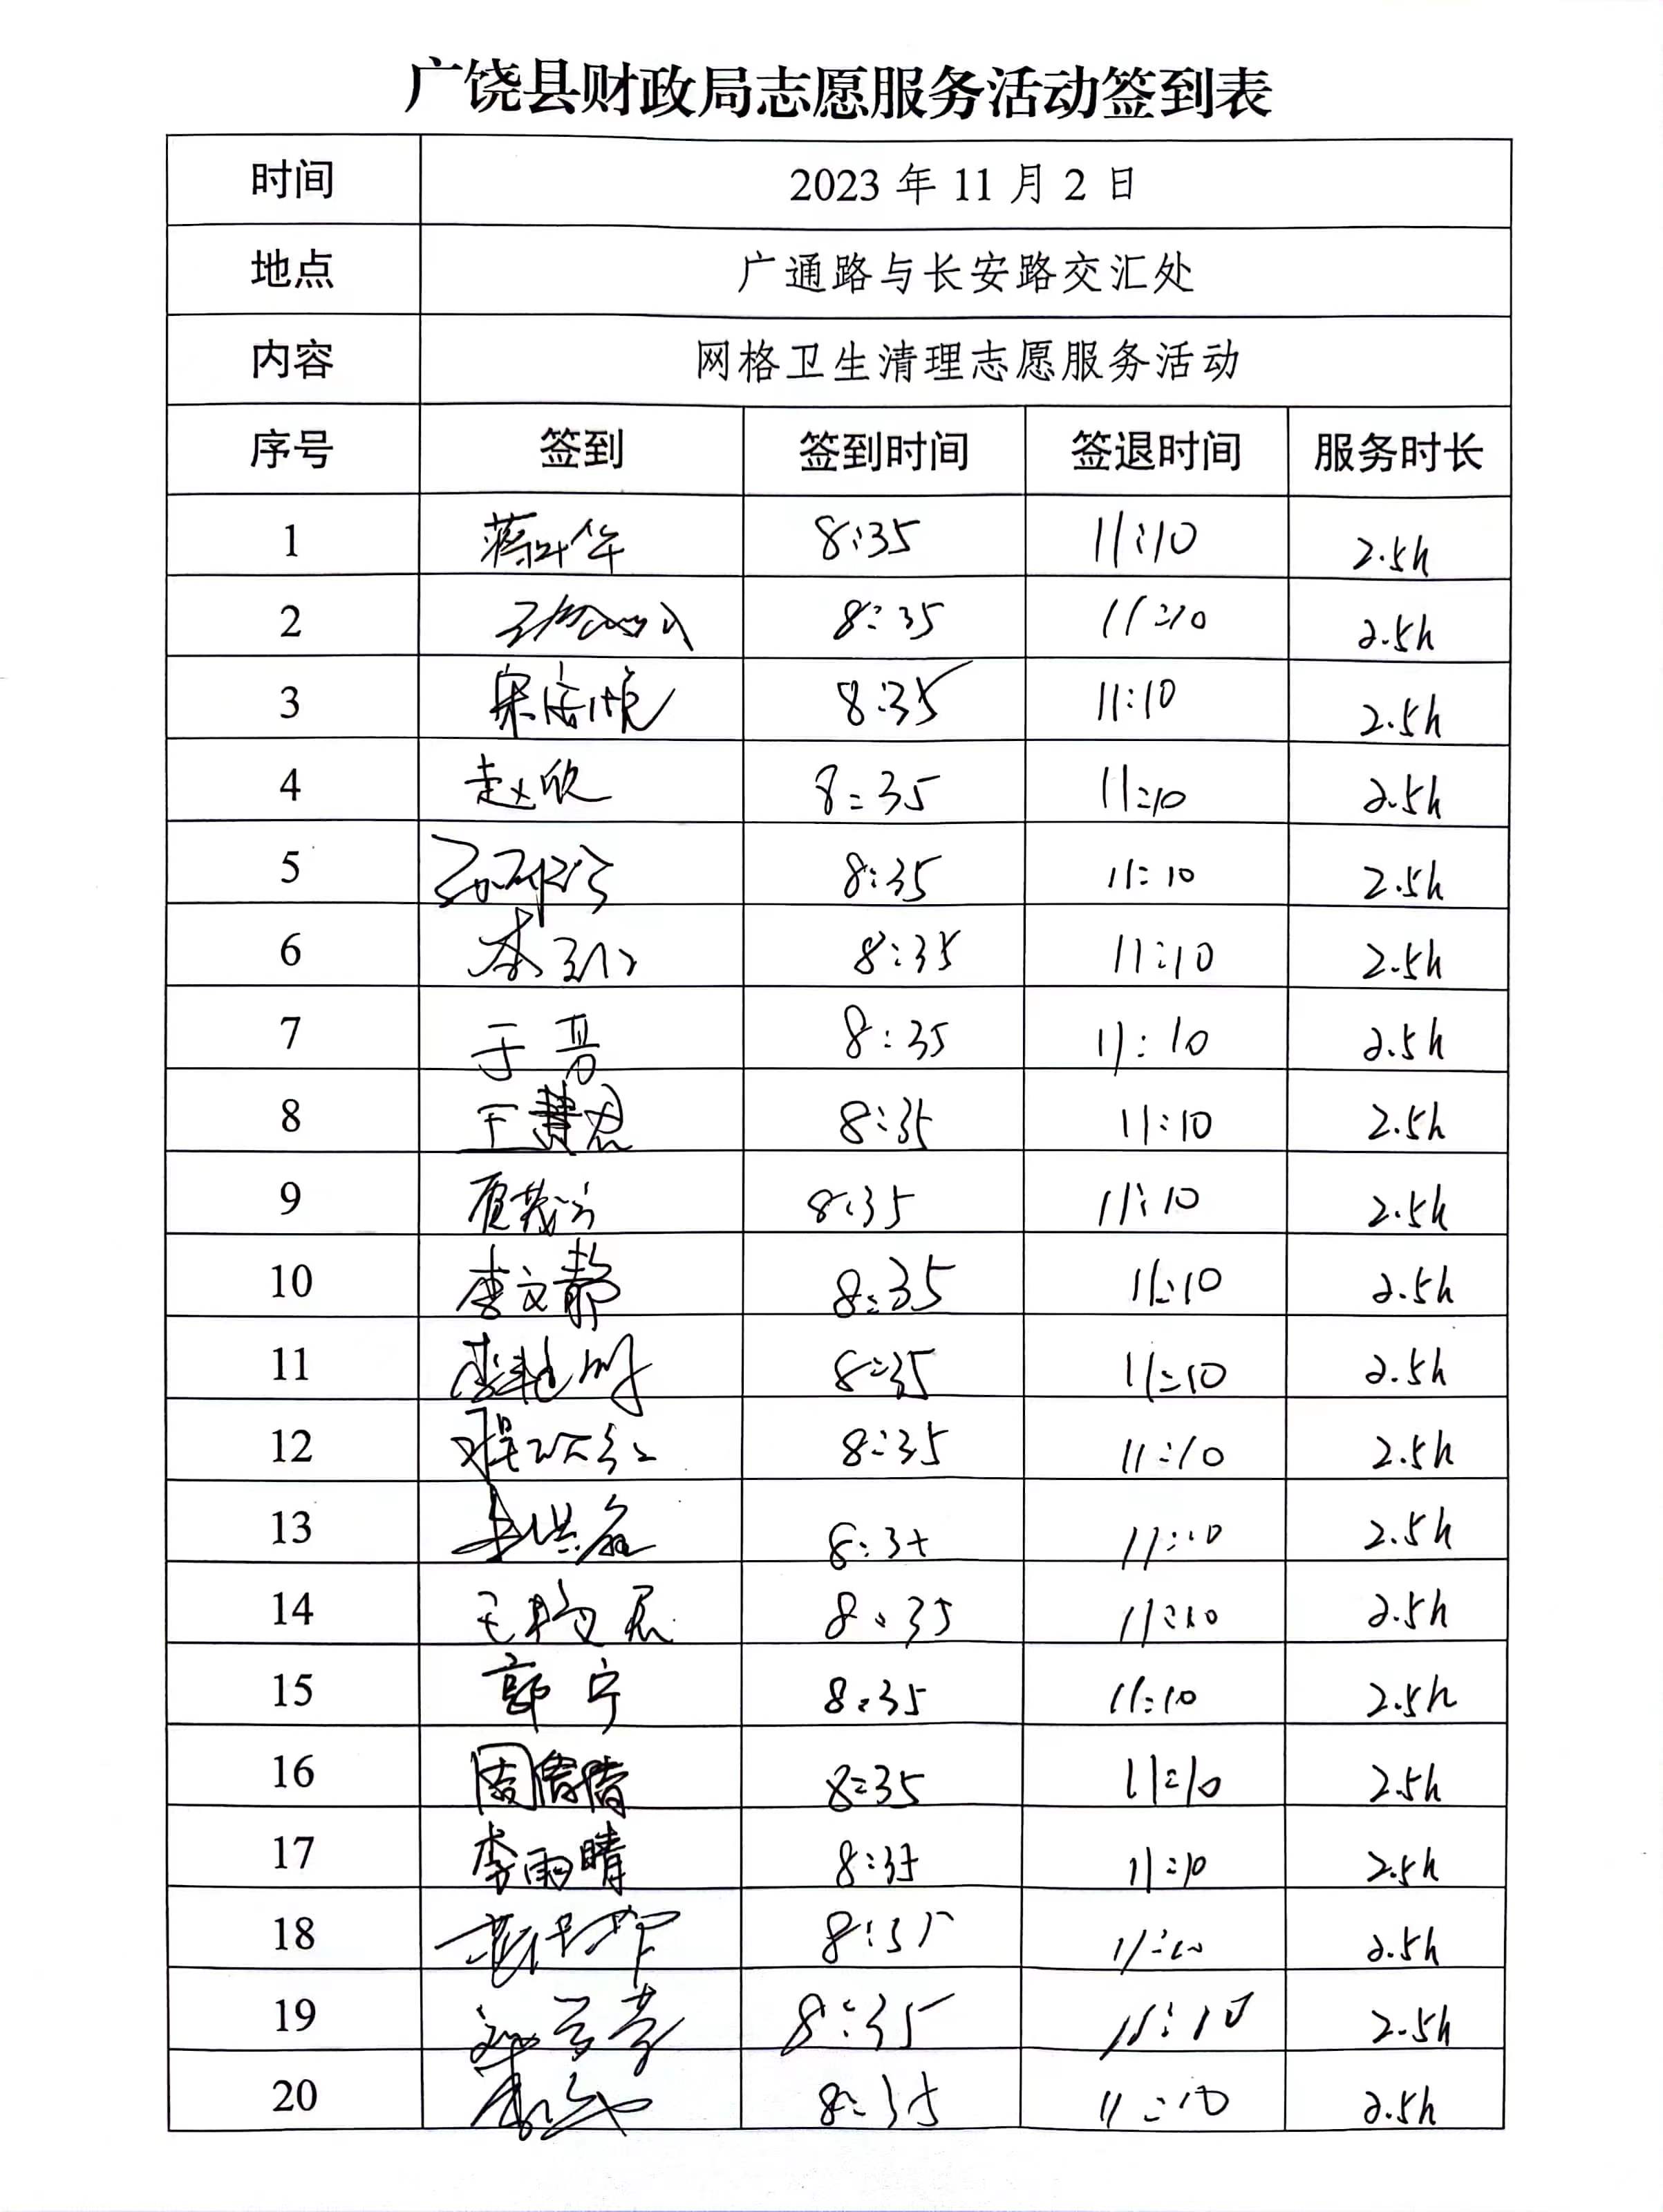 广饶县财政局志愿服务活动签到表
时间 2023 年 11 月 2 日
地点 广通路与长安路交汇处
内容 网格卫生清理志愿服务活动
序号 签到 签到时间 签退时间 服务时长
1 8:35 11:10 2.5h
2 8:35 11:10 2.5h
3 8:35 11:10 2.5h
4 赵欣 8:35 11:10 2.5h
5 8:35 11:10 2.5h
6 8:35 11:10 2.5h
7 8:35 11:10 2.5h
8 王慧君 8:35 11:10 2.5h
9 8:35 11:10 2.5h
10 李文静 8:35 11:10 2.5h
11 李艳明 8:35 11:10 2.5h
12 8:35 11:10 2.5h
13 8:35 11:10 2.5h
14 8:35 11:10 2.5h
15 郭宁 8:35 11:10 2.5h
16 周倩倩 8:35 11:10 2.5h
17 李雨晴 8:35 11:10 2.5h
18 8:35 11:10 2.5h
19 8:35 11:10 2.5h
20 8:35 11:10 2.5h